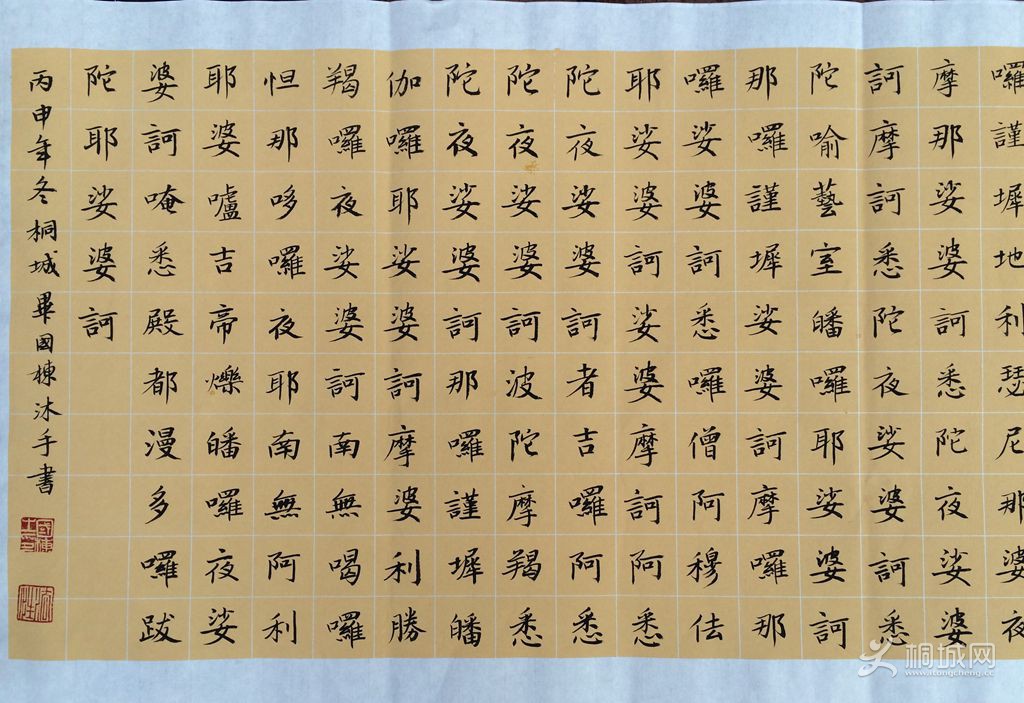 囉謹墀地利瑟尼那婆夜
摩那娑婆訶悉陀夜娑婆
訶摩訶悉陀夜娑婆訶悉
陀喻藝室皤囉耶娑婆訶
那囉謹墀娑婆訶摩囉那
囉娑婆訶悉囉僧阿穆佉
耶娑婆訶娑婆摩訶阿悉
陀夜娑婆訶者吉囉阿悉
陀夜娑婆訶波陀摩羯悉
陀夜娑婆訶那囉謹墀皤
伽囉耶娑婆訶摩婆利勝
羯囉夜娑婆訶南無喝囉
怛那哆囉夜耶南無阿利
耶婆嚧吉帝爍皤囉夜娑
婆訶唵悉殿都漫多囉跋
陀耶娑婆訶
丙申年冬桐城畢國棟沐手書
桐城网
www.atongcheng.cc